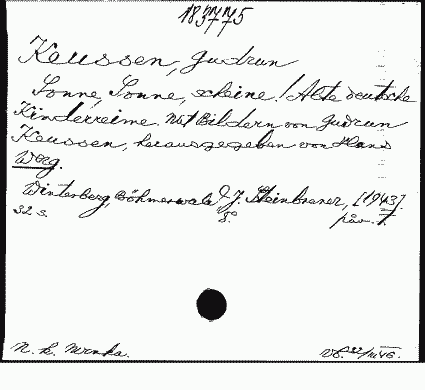 183775
Keussen, Gudrun
Sonne, Sonne, scheine! Alte deutsche
Kinderreime. Mit Bildern von Gudrun
Keussen, herausgegeben von Hans
Werg.
Winterberg, Böhmerwald, J. Steinbrener, [1943].
32 s. 8°. päv. 7.
N. k.